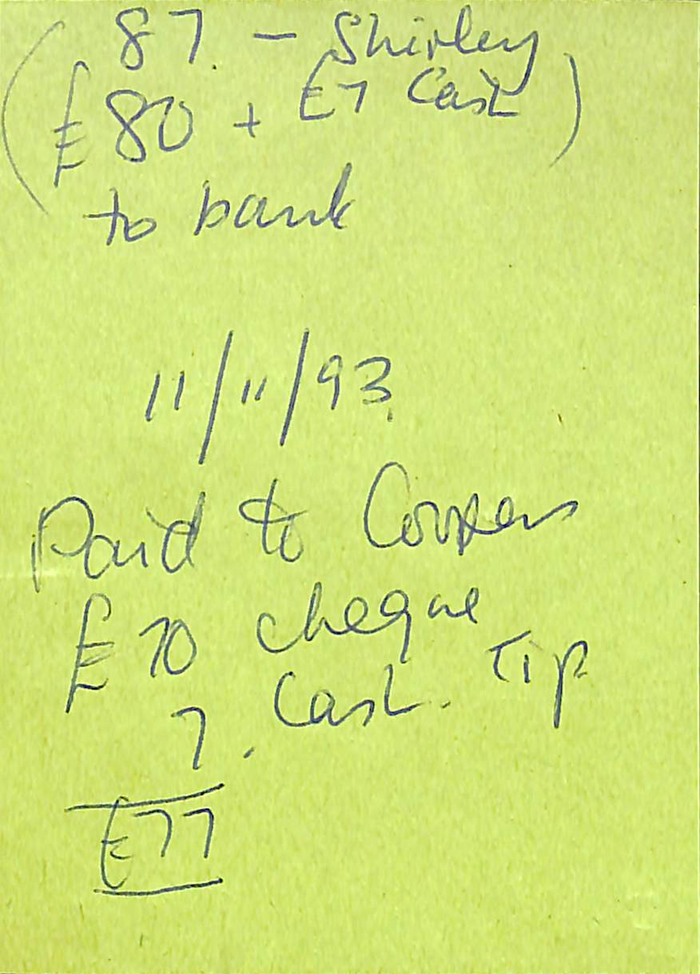 ( 87. - Shirley
£80 + £7 Cash )
to bank
11/11/93.
Paid to Coopers
£70 cheque
7. Cash. Tip
£77